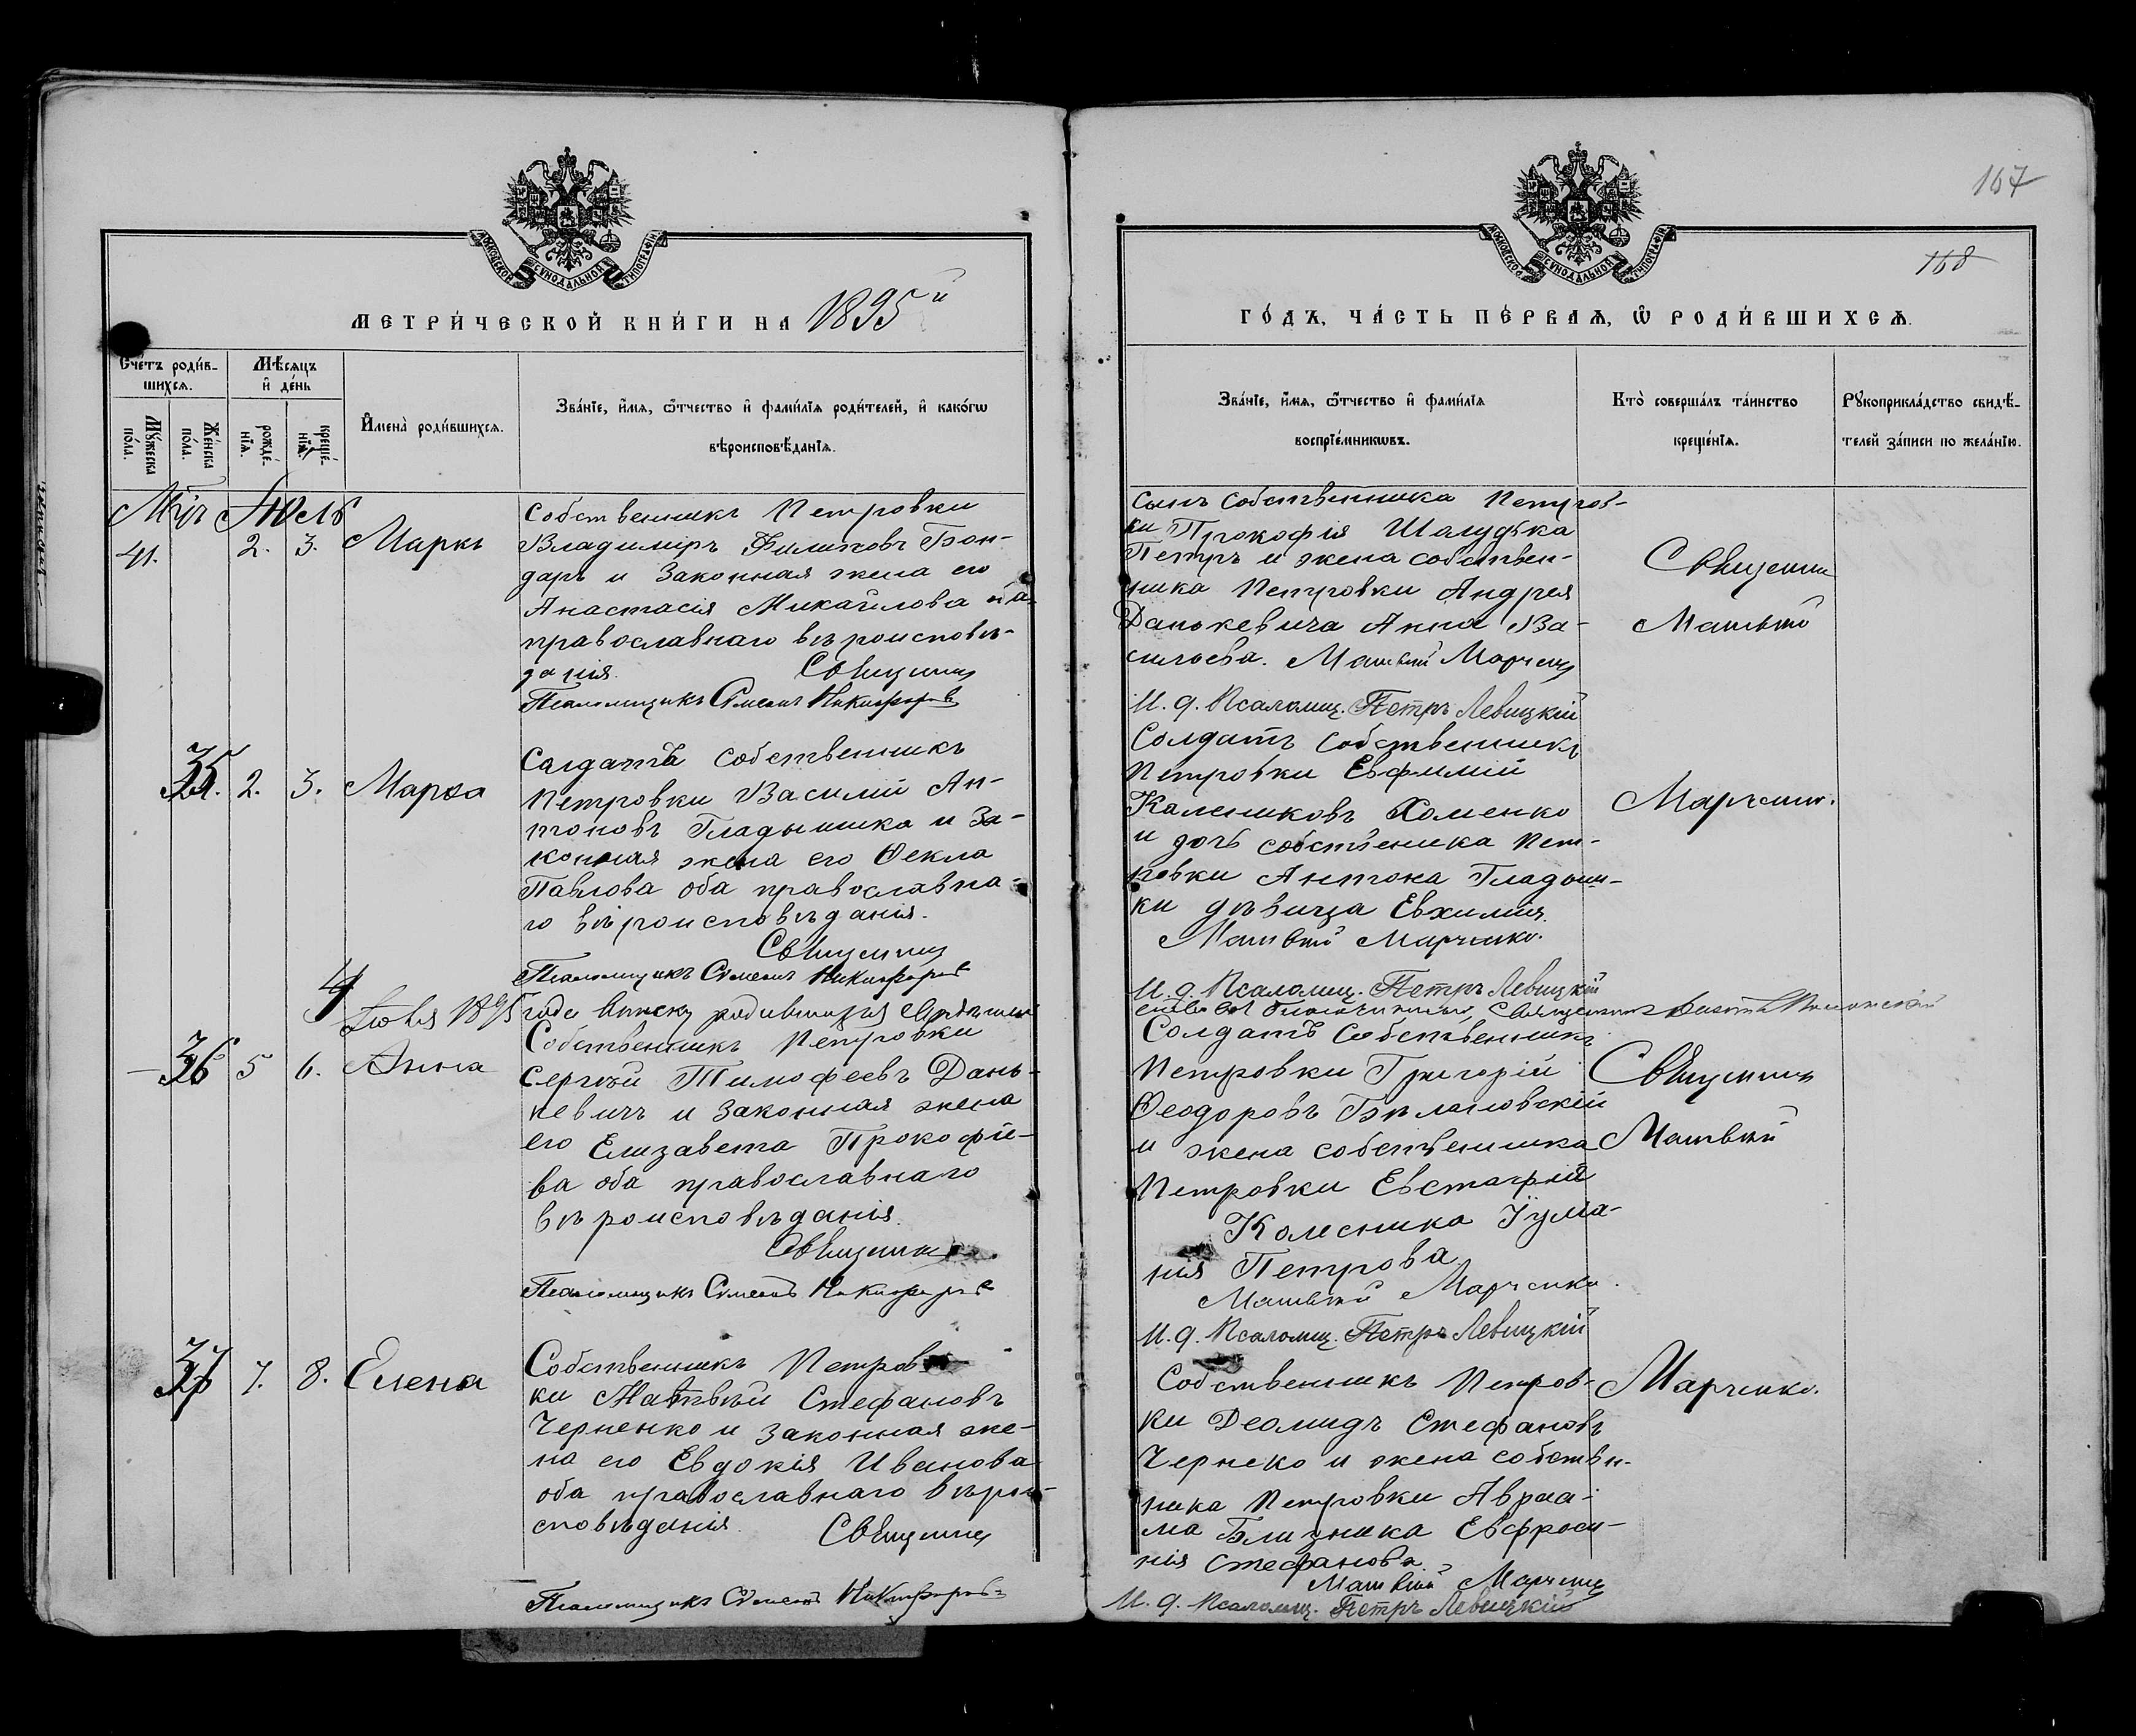 167
168
МОСКОВСКОЙ СѴНОДАЛЬНОЙ ТИПОГРАФІИ
МЕТРИ́ЧЕСКОЙ КНИ́ГИ НА 1895й
Сче́тъ роди́в-
шихся.
Мѣ́сяцъ
и҆ де́нь
Му́жеска
по́ла.
Же́нска
по́ла.
рожде́-
нїѧ.
креще́-
нїѧ.
И҆мена̀ роди́вшихся.
Зва́нїе, и҆́мѧ, ѻ҆́тчество и҆ фами́лїѧ роди́телей, и҆ како́гѡ
вѣроисповѣ́данїѧ.
Іюль
41.
2.
3.
Маркъ
Собственникъ Петровки
Владиміръ Филиповъ Бон-
даръ и законная жена его
Анастасія Микаилова оба
православнаго вѣроисповѣ-
данія. Священник
Псаломщикъ Симеонъ Никифоров
35.
2.
3.
Марѳа
Салдатъ собственникъ
Петровки Василій Ан-
тоновъ Гладышка и за-
конная жена его Ѳекла
Павлова оба православна-
го вѣроисповѣданія.
Священник
Псаломщикъ Симеонъ Никифоров
4 Іюля 1895 года
36
5
6.
Анна
Собственникъ Петровки
Сергѣй Тимофеевъ Дань-
кевичъ и законная жена
его Елизавета Прокофіе-
ва оба православнаго
вѣроисповѣданія.
Священник
Псаломщикъ Симеонъ Никифоров
37
7.
8.
Елена
Собственникъ Петров-
ки Матвѣй Стефановъ
Черненко и законная же-
на его Евдокія Иванова
оба православнаго вѣрои-
сповѣданія. Священник
Псаломщикъ Симеонъ Никифоров
МОСКОВСКОЙ СѴНОДАЛЬНОЙ ТИПОГРАФІИ
ГО́ДЪ, ЧА́СТЬ ПЕ́РВАѦ, Ѡ҆ РОДИ́ВШИХСѦ.
Зва́нїе, и҆́мѧ, ѻ҆́тчество и҆ фами́лїѧ
воспрїе́мникѡвъ.
Кто̀ соверша́лъ та́инство
креще́нїѧ.
Рꙋкоприкла́дство свидѣ́-
телей за́писи по жела́нїю.
Сынъ собственника Петров-
ки Прокофія Шалудька
Петръ и жена собствен-
ника Петровки Андрея
Данькевича Анна Ва-
сильева. Матвій Марченко
И. д. Псаломщ. Петръ Левицкій
Священник
Матвій
Солдатъ собственникъ
Петровки Евфимій
Калениковъ Хоменко
и дочь собственика Пет-
ровки Антона Гладыш-
ки дѣвица Евхимія.
Матвій Марченко.
И. д. Псаломщ. Петръ Левицкій
Марченко.
Солдатъ Собственникъ
Петровки Григорій
Ѳеодоровъ Бѣлаловскій
и жена собственника
Петровки Евстафія
Колесника Іулiа-
нія Петрова
Матвій Марченко.
И. д. Псаломщ. Петръ Левицкій
Священникъ
Матвій
Собственникъ Петров-
ки Деомидъ Стефановъ
Чернеко и жена собствен-
ника Петровки Авраа-
ма Близника Евфроси-
нія Стефанова
Матвій Марченко
И. д. Псаломщ. Петръ Левицкій
Марченко.